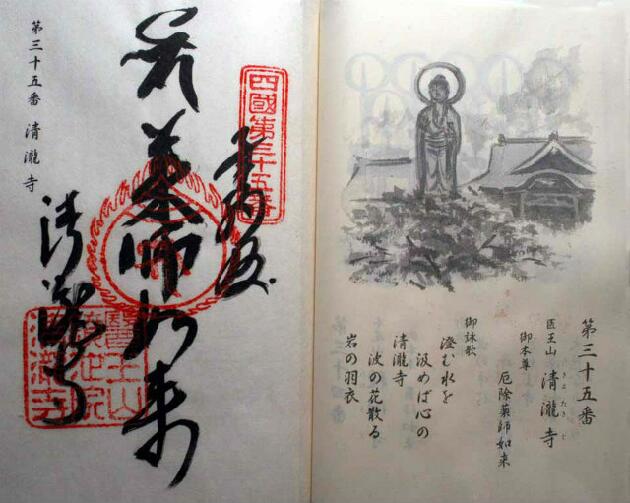 第三十五番
医王山 清瀧寺
きよたきじ
御本尊
厄除薬師如来
御詠歌
澄む水を
汲めば心の
清瀧寺
波の花散る
岩の羽衣
四國第三十五番
薬師如来
清瀧寺
醫王山
鏡池院
清瀧寺
第三十五番 清瀧寺